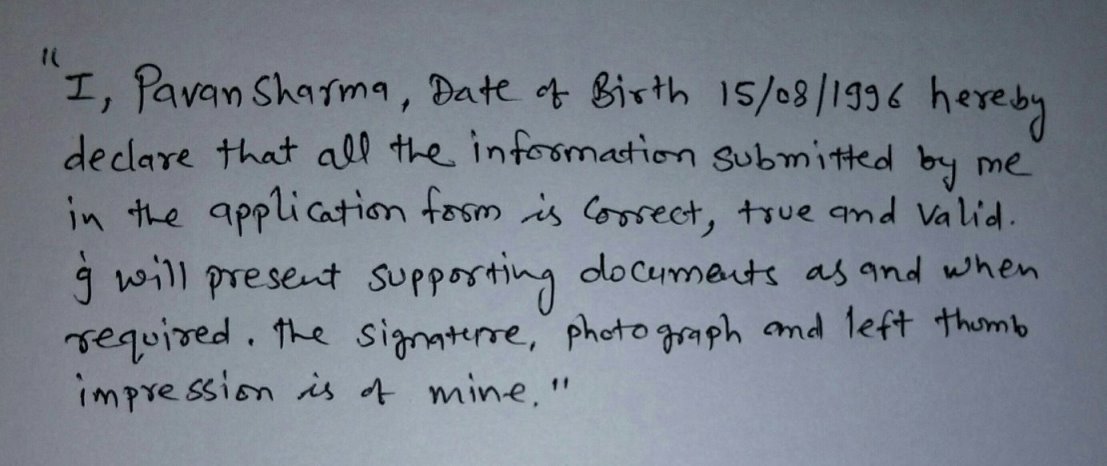 "I, Pavan Sharma, Date of Birth 15/08/1996 hereby
declare that all the information submitted by me
in the application form is Correct, true and Valid.
I will present supporting documents as and when
required. The signature, photograph and left thumb
impression is of mine."